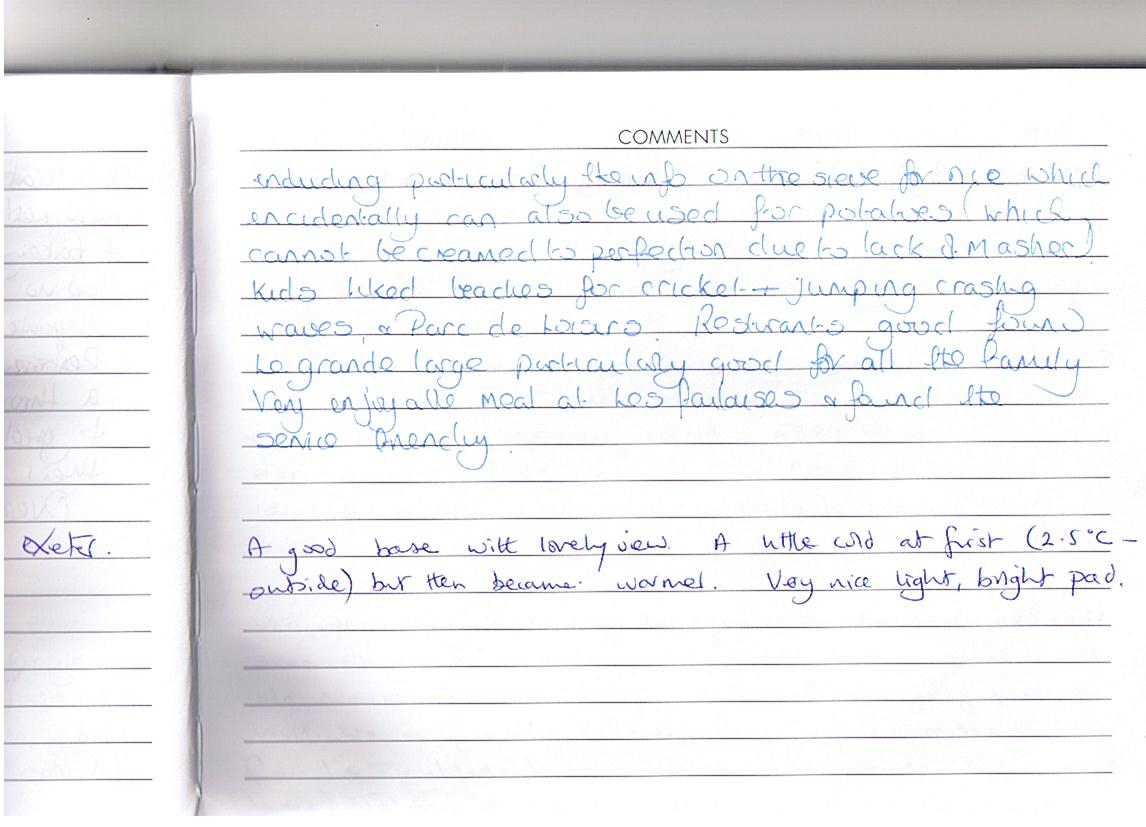 COMMENTS
including particularly the info on the sieve for rice which
encidentally can also be used for potatoes (which
cannot be creamed to perfection due to lack of masher)
Kids liked beaches for cricket + jumping crashing
waves, & Parc de Loisirs. Resturants good found
Le grande large particularly good for all the family
Very enjoyable meal at Les & found the
service friendly.
Exeter. A good base with lovely view. A little cold at first (2.5°C –
outside) but then became warmer. Very nice light, bright pad.